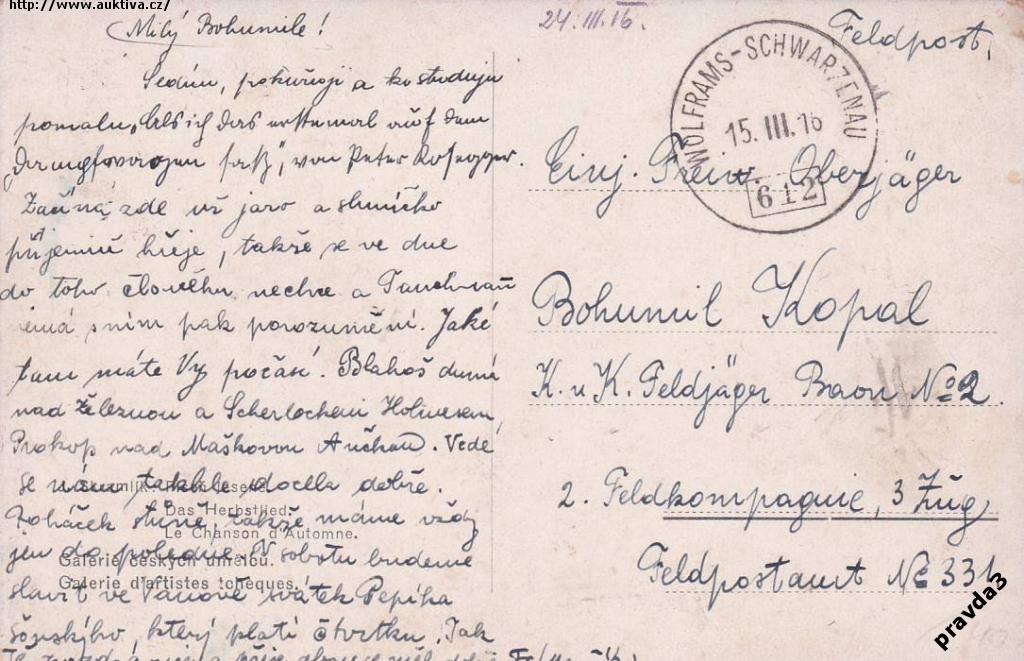 http://www.auktiva.cz/
Milý Bohumile!
24. III. 16.
Feldpost.
WOLFRAMS-SCHWARZENAU
15. III. 16
612
Sedím, pokuřuji a ko studuju
pomalu „Als ich das erstemal auf dem
Dampfwagen saß", von Peter Rosegger.
Začíná zde už jaro a sluníčko
příjemně hřeje, takže se ve dne
do toho člověku nechce a
nemá s ním pak porozumění. Jaké
tam máte Vy počasí. Blahoš dumá
nad Železnou a Scherlockem Holmesem,
Prokop nad Maškovou Ančkou. Vede
se nám takhle docela dobře.
Zoháček stůně, takže máme vždy
jen do poledne. V sobotu budeme
slavit ve Vanově svátek Pepíka
který platí čtvrtku. Tak
Einj. Freiw. Oberjäger
Bohumil Kopal
K. u K. Feldjäger Baon No 2.
2. Feldkompagnie, 3 Zug
Feldpostamt No 331
Píseň jeseně.
Das Herbstlied.
Le Chanson d'Automne.
Galerie českých umělců.
Galerie d'artistes tchèques.
pravda3